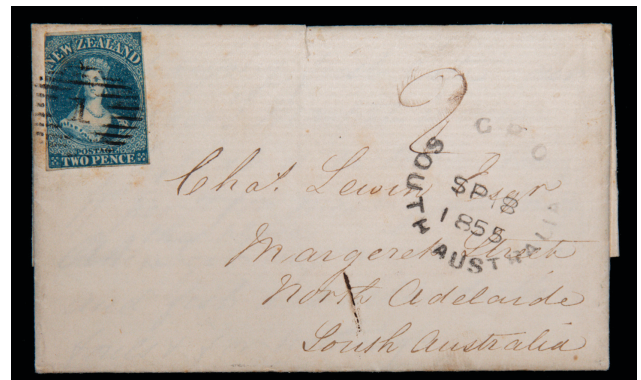 NEW ZEALAND
POSTAGE
TWO PENCE
1
2
G P O
SOUTH AUSTRALIA
SP 8
1855
Chas. Lewin Esqr
Margeret Street
North Adelaide
South Australia